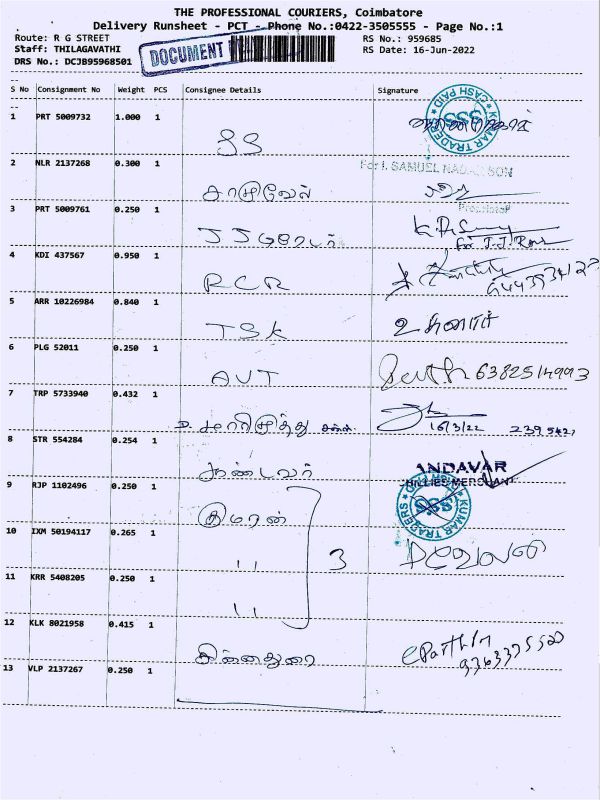 THE PROFESSIONAL COURIERS, Coimbatore
Delivery Runsheet - PCT - Phone No.:0422-3505555 - Page No.:1
Route: R G STREET RS No.: 959685
Staff: THILAGAVATHI DOCUMENT RS Date: 16-Jun-2022
DRS No.: DCJB95968501
S No Consignment No Weight PCS Consignee Details Signature
1 PRT 5009732 1.000 1
SS KUMAR TRADERS CASH PAID SSS
2 NLR 2137268 0.300 1 For I. SAMUEL NADAR SON
காசிவேல்
3 PRT 5009761 0.250 1 Proprietor
JJ ரோடர் for J.J. Rose
4 KDI 437567 0.950 1
RCR
5 ARR 10226984 0.840 1
TSK
6 PLG 52011 0.250 1
AVT 6382514993
7 TRP 5733940 0.432 1
D. மாரிமுத்து சன்ஸ் 16/3/22 2395421
8 STR 554284 0.254 1
ஆண்டவர் ANDAVAR
CHILLIES MERCHANT
9 RJP 1102496 0.250 1
குமரன் KUMAR TRADERS CASH PAID SSS
10 IXM 50194117 0.265 1
" 3
11 KRR 5408205 0.250 1
"
12 KLK 8021958 0.415 1
சின்னதுரை
13 VLP 2137267 0.250 1